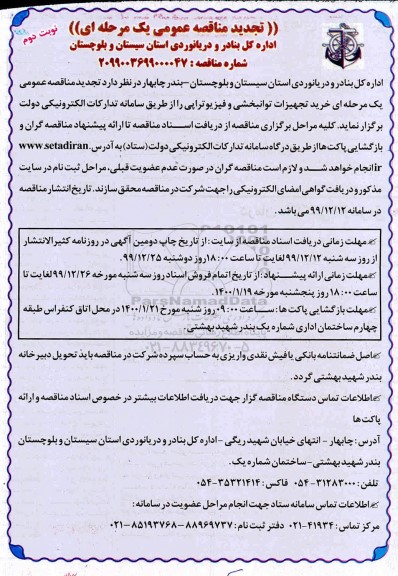 (( تجدید مناقصه عمومی یک مرحله ای))
نوبت دوم
اداره کل بنادر و دریانوردی استان سیستان و بلوچستان
شماره مناقصه : ۲۰۹۹۰۰۳۶۹۹۰۰۰۰۴۷
اداره کل بنادر و دریانوردی استان سیستان و بلوچستان -بندر چابهار در نظر دارد تجدید مناقصه عمومی
یک مرحله ای خرید تجهیزات توانبخشی و فیزیوتراپی را از طریق سامانه تدارکات الکترونیکی دولت
برگزار نماید. کلیه مراحل برگزاری مناقصه از دریافت اسـناد مناقصه تا ارائه پیشنهاد مناقصه گران و
بازگشایی پاکت ها از طریق درگاه سامانه تدارکات الکترونیکی دولت (ستاد) به آدرس www.setadiran.
ir انجام خواهد شد و لازم است مناقصه گران در صورت عدم عضویت قبلی، مراحل ثبت نام در سایت
مذکور و دریافت گواهی امضای الکترونیکی را جهت شرکت در مناقصه محقق سازند. تاریخ انتشار مناقصه
در سامانه ۹۹/۱۲/۱۲ می باشد.
مهلت زمانی دریافت اسناد مناقصه از سایت : از تاریخ چاپ دومین آگهی در روزنامه کثیرالانتشار
از روز سه شنبه ۹۹/۱۲/۱۲ لغایت تا ساعت ۱۸:۰۰ روز دوشنبه ۹۹/۱۲/۲۵.
مهلت زمانی ارائه پیشـــنهاد: از تاریخ اتمام فروش اسناد روز سه شنبه مورخه ۹۹/۱۲/۲۶ لغایت تا
ساعت ۱۸:۰۰ روز پنجشنبه مورخه ۱۴۰۰/۱/۱۹.
مهلت بازگشایی پاکت ها : ســاعت ۰۹:۰۰ روز شنبه مورخ ۱۴۰۰/۱/۲۱ در محل اتاق کنفراس طبقه
چهارم ساختمان اداری شماره یک بندر شهید بهشتی.
اصل ضمانتنامه بانکی یا فیش نقدی واریزی به حساب سپرده شرکت در مناقصه باید تحویل دبیرخانه
بندر شهید بهشتی گردد.
اطلاعات تماس دستگاه مناقصه گزار جهت دریافت اطلاعات بیشتر در خصوص اسناد مناقصه و ارائه
پاکت ها
آدرس : چابهار - انتهای خیابان شهید ریگی - اداره کل بنادر و دریانوردی استان سیستان و بلوچستان
بندر شهید بهشتی- ساختمان شماره یک.
تلفن : ۳۱۲۸۳۰۰۰-۰۵۴ فاکس : ۳۵۳۲۱۴۱۴-۰۵۴
اطلاعات تماس سامانه ستاد جهت انجام مراحل عضویت در سامانه :
مرکز تماس : ۴۱۹۳۴-۰۲۱ دفتر ثبت نام : ۸۸۹۶۹۷۳۷ -۸۵۱۹۳۷۶۸-۰۲۱
ParsNamadData
۰۲۱-۸۸۳۴۹۶۷۰-۵